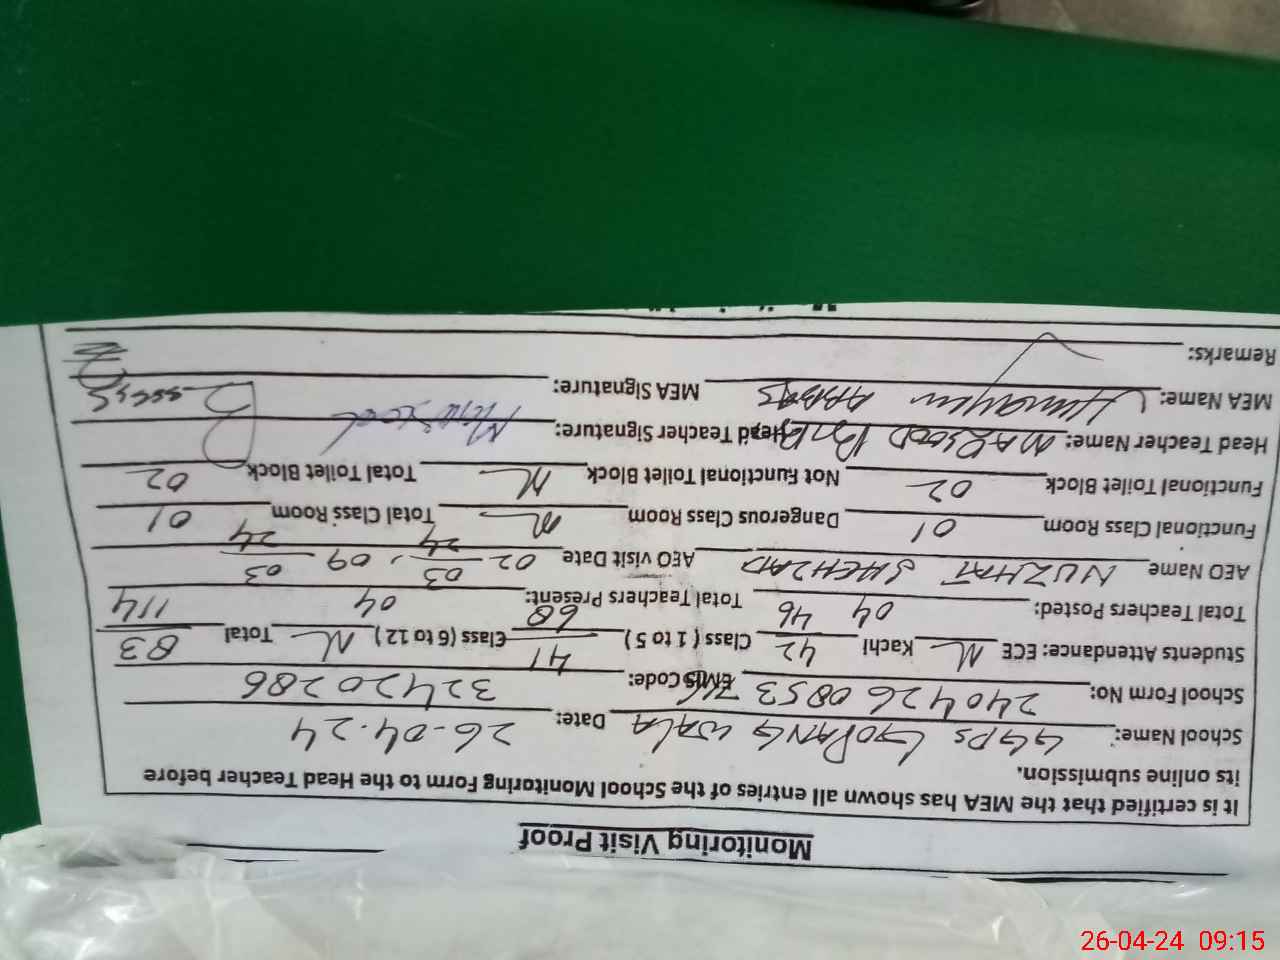 Monitoring Visit Proof
It is certified that the MEA has shown all entries of the School Monitoring Form to the Head Teacher before
its online submission.
School Name: GGPS GOPANG WALA Date: 26-04-24
School Form No: 240426 0853 EMIS Code: 32420286
Students Attendance: ECE Nil Kachi 42/46 Class (1 to 5) 41/68 Class (6 to 12) Nil Total 83/114
Total Teachers Posted: 04 Total Teachers Present: 04
AEO Name NUZHAT SHEHZAD AEO visit Date 02-03-24, 09-03-24
Functional Class Room 01 Dangerous Class Room Nil Total Class Room 01
Functional Toilet Block 02 Not Functional Toilet Block Nil Total Toilet Block 02
Head Teacher Name: MAQSOOD Head Teacher Signature:
MEA Name: Humayun ABBAS MEA Signature:
Remarks:
26-04-24 09:15